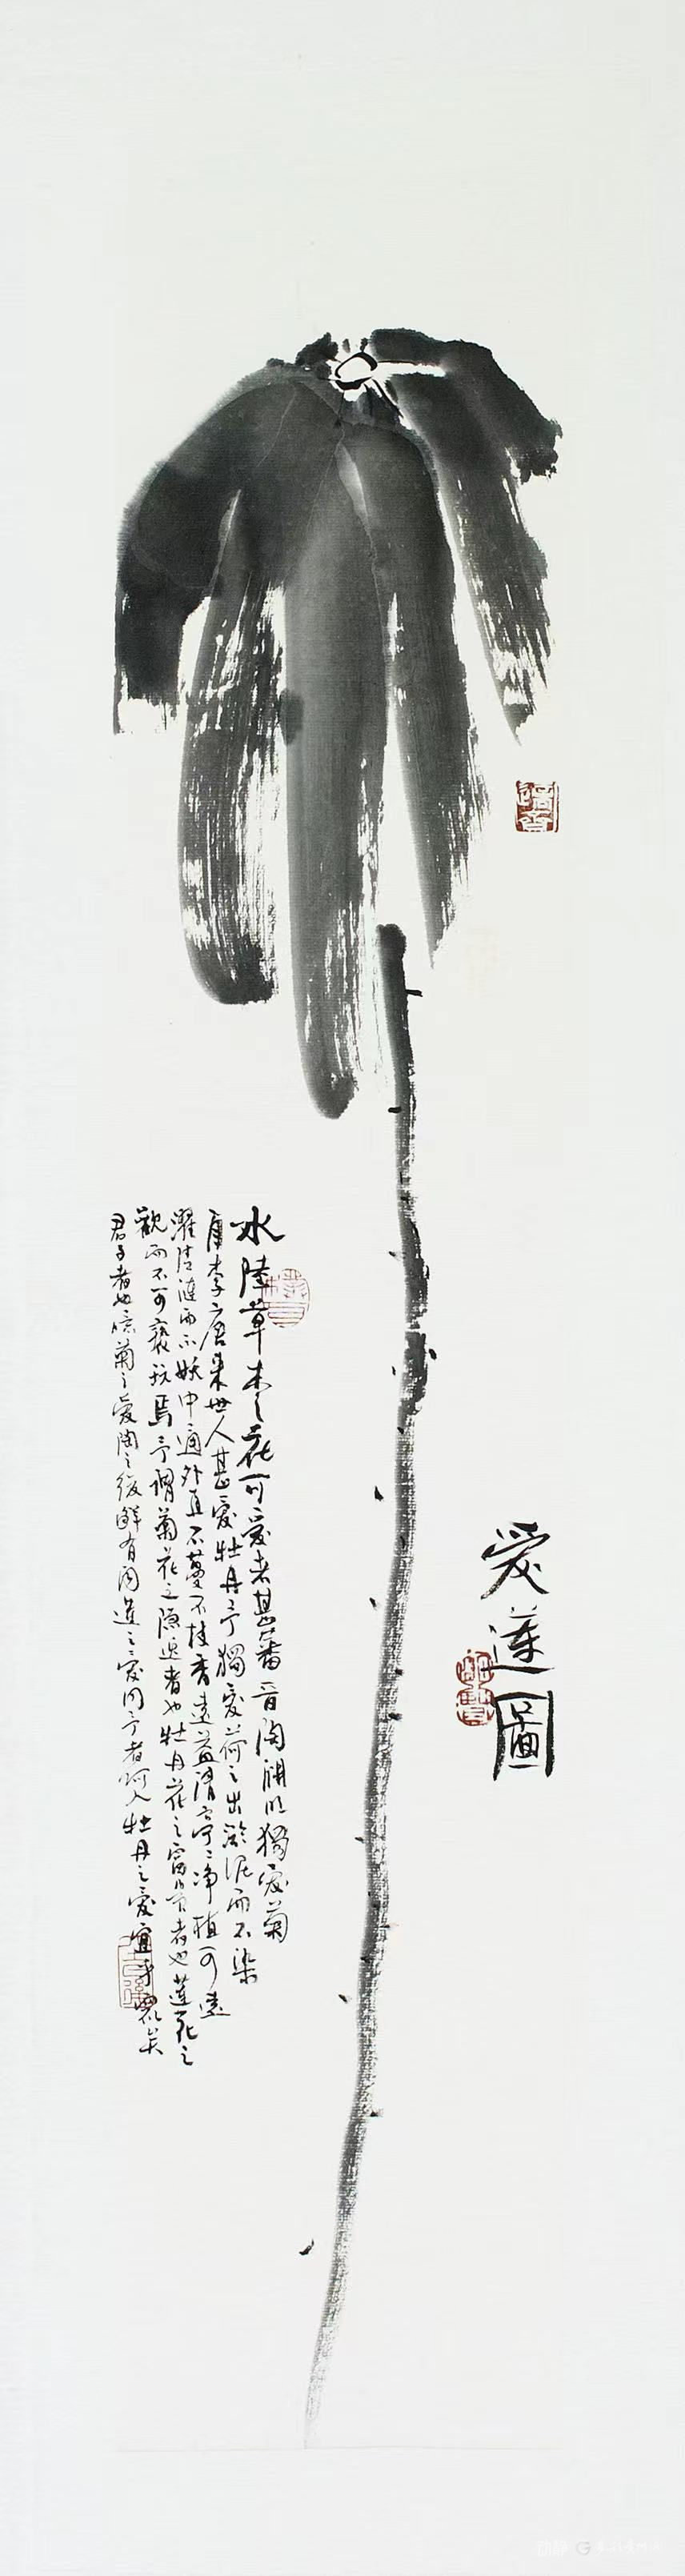 愛蓮圖
水陸草木之花可愛者甚蕃晉陶淵明獨愛菊
自李唐来世人甚愛牡丹予獨愛荷之出淤泥而不染
濯清漣而不妖中通外直不蔓不枝香遠益清亭亭净植可遠
觀而不可褻玩焉予謂菊花之隐逸者也牡丹花之富貴者也蓮花之
君子者也噫菊之愛陶之後鮮有聞蓮之愛同予者何人牡丹之愛宜乎衆矣